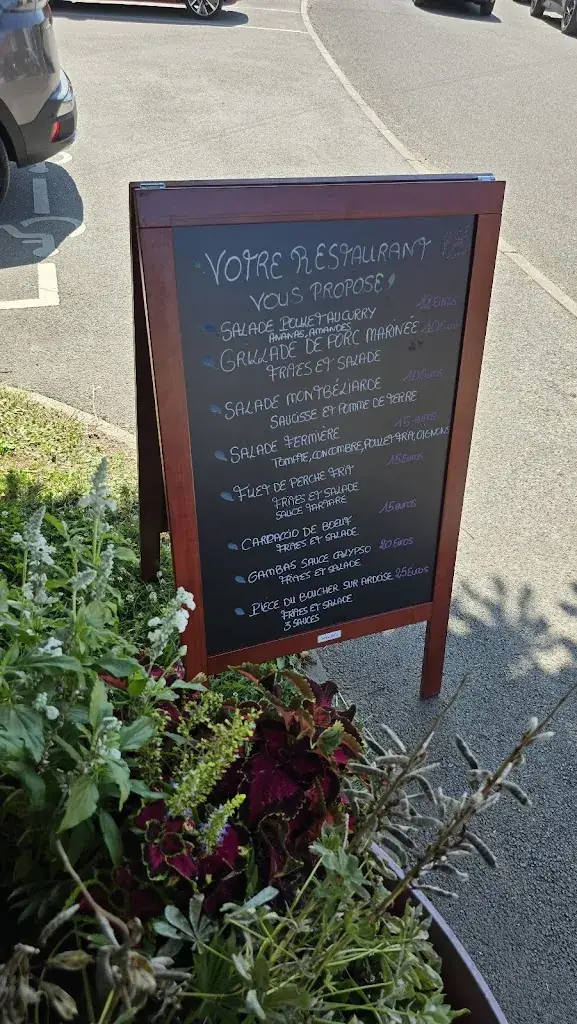 VOTRE RESTAURANT
VOUS PROPOSE!
SALADE POULET AU CURRY
ANANAS, AMANDES
GRILLADE DE PORC MARINÉE
FRITES ET SALADE
SALADE MONTBÉLIARDE 10 EUROS
SAUCISSE ET POMME DE TERRE
SALADE FERMIÈRE 15 EUROS
TOMATE, CONCOMBRE, POULET FRIT, OIGNONS
FILET DE PERCHE FRIT 15 EUROS
FRITES ET SALADE
SAUCE TARTARE
CARPACCIO DE BOEUF 15 EUROS
FRITES ET SALADE
GAMBAS SAUCE CALYPSO 20 EUROS
FRITES ET SALADE
PIÈCE DU BOUCHER SUR ARDOISE 25 EUROS
FRITES ET SALADE
3 SAUCES